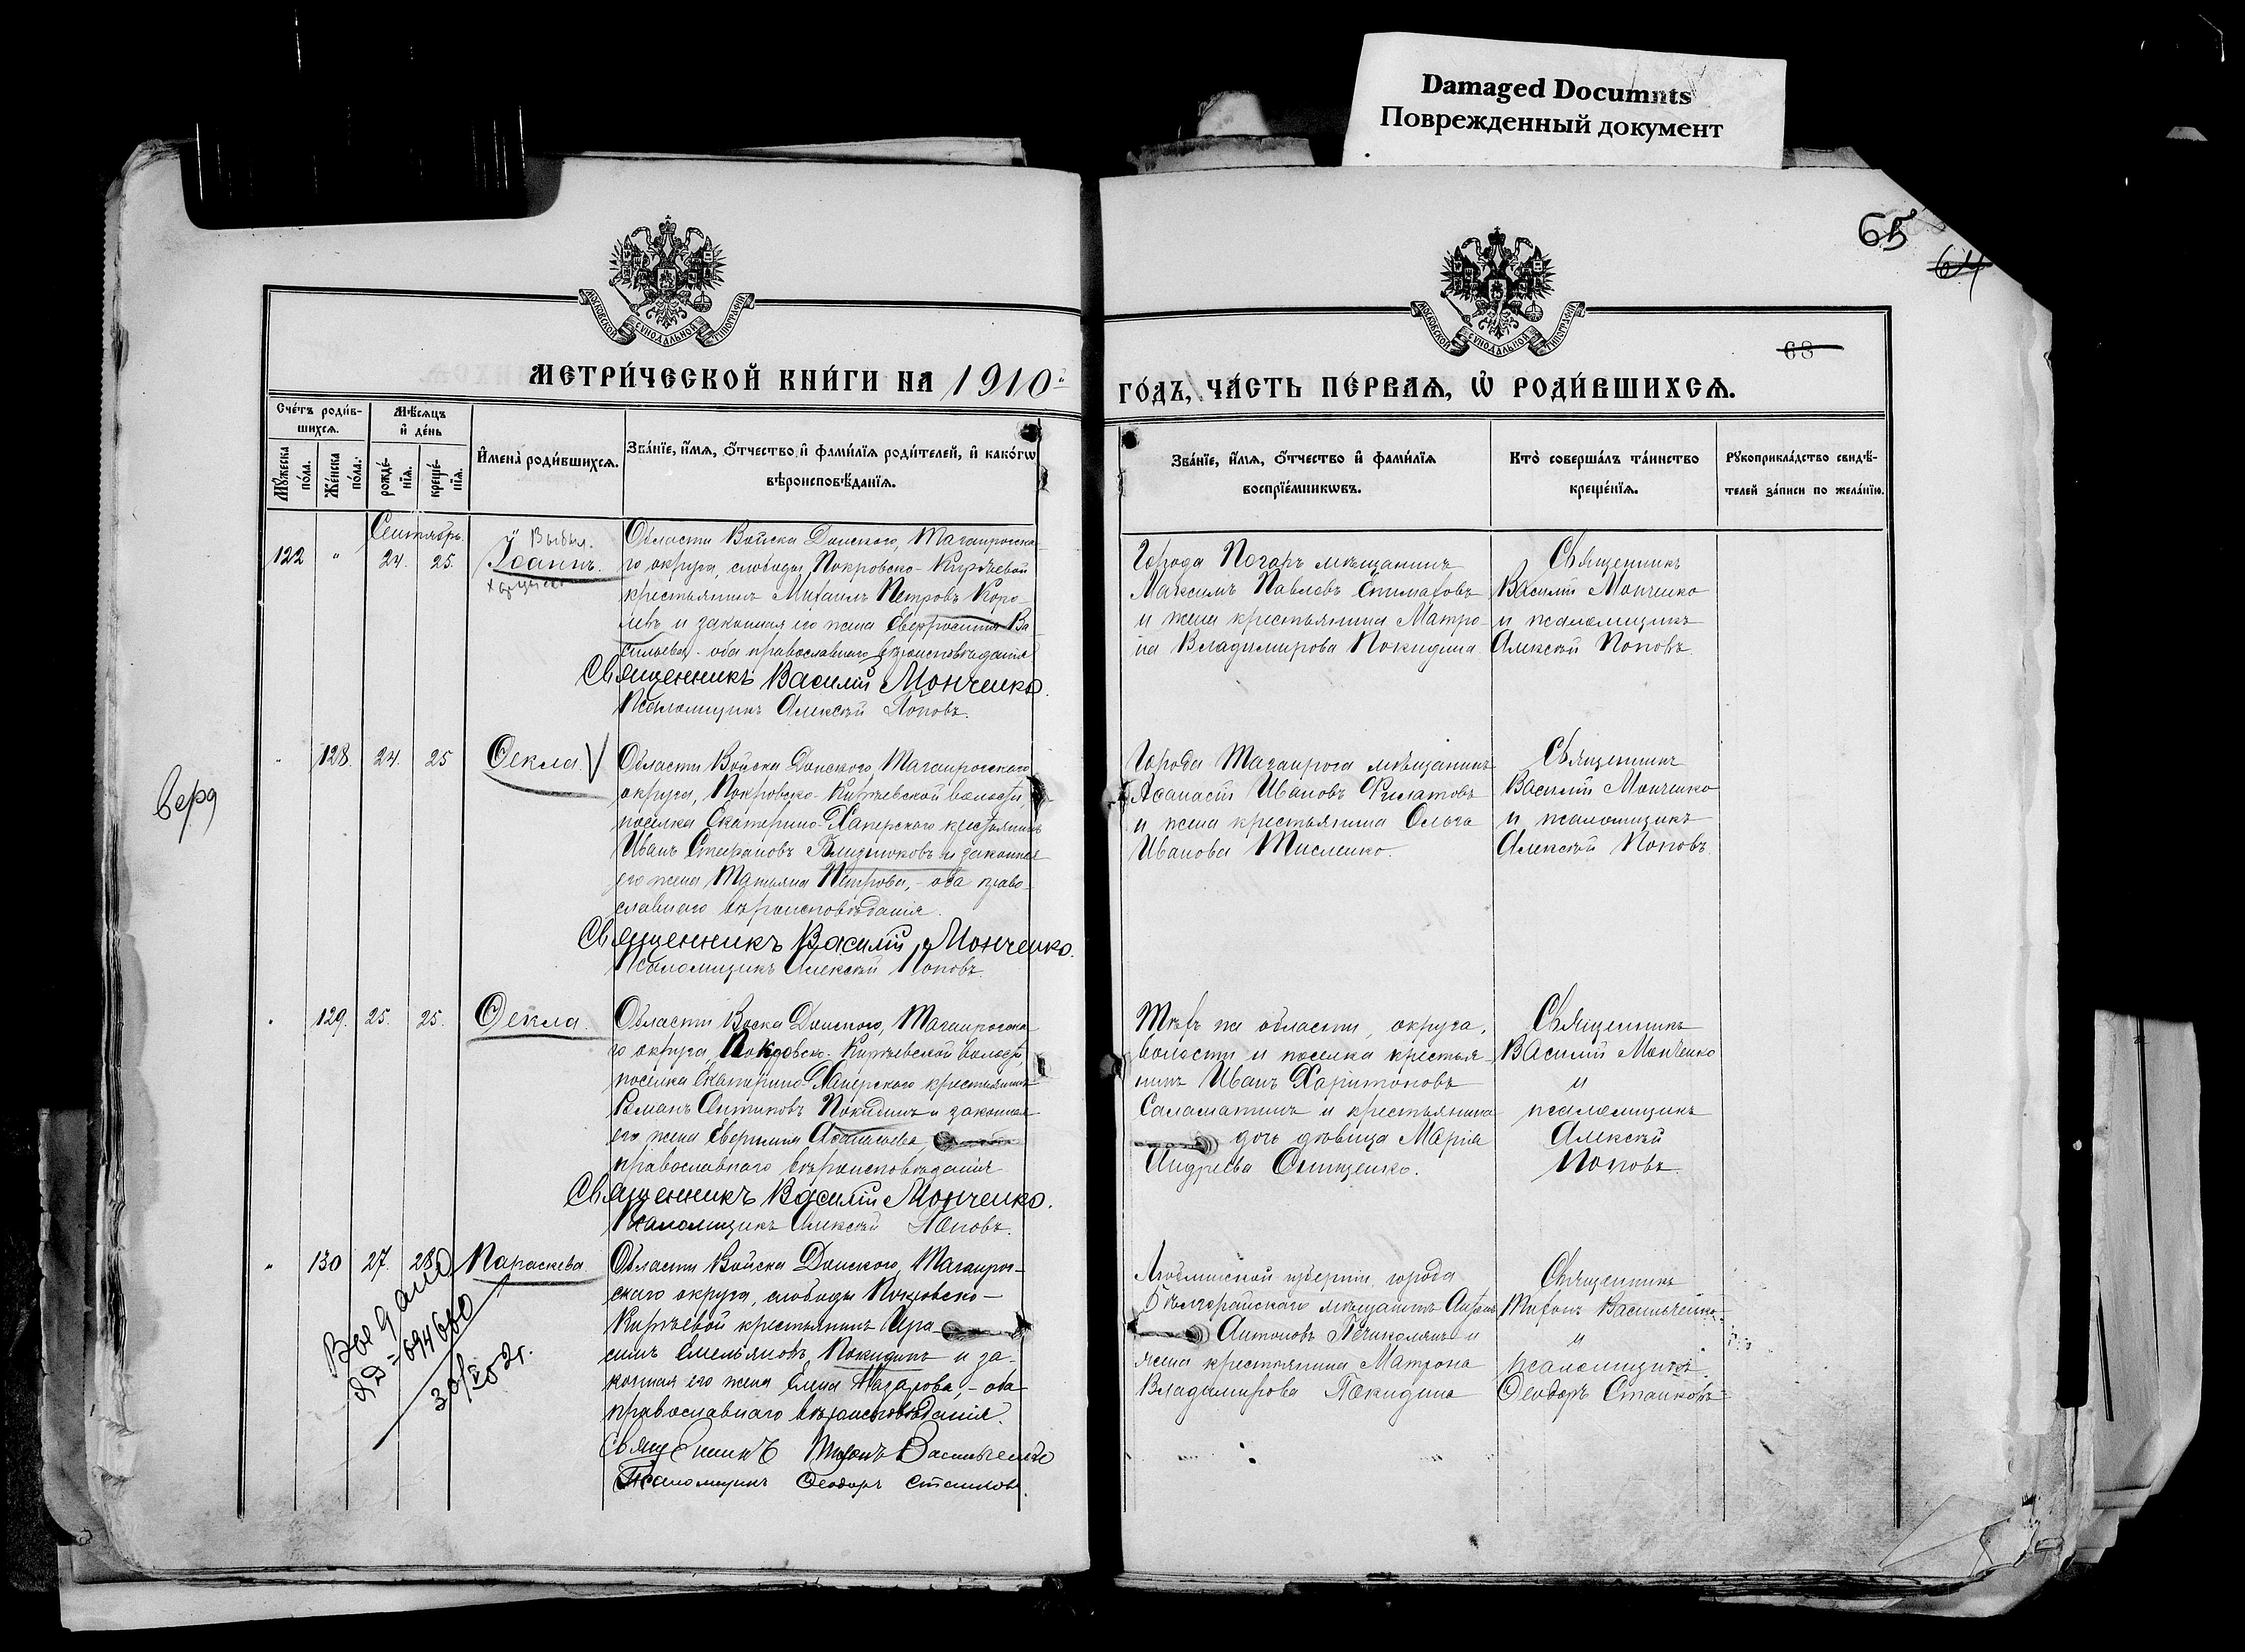 Damaged Documnts
Поврежденный документ
65
64
68
МОСКОВСКОЙ СУНОДАЛЬНОЙ ТИПОГРАФІИ
МОСКОВСКОЙ СУНОДАЛЬНОЙ ТИПОГРАФІИ
МЕТРИ́ЧЕСКОЙ КНИ́ГИ НА 1910й
ГО́ДЪ, ЧА́СТЬ ПЕ́РВАѦ, Ѡ РОДИ́ВШИХСѦ.
Сче́тъ роди́в-
шихсѧ.
Мꙋжеска
по́ла.
Же́нска
по́ла.
Мѣ́сѧцъ
и҆ де́нь
рожде́-
нїѧ.
креще́-
нїѧ.
И҆мена̀ роди́вшихсѧ.
Зва́нїе, и҆́мѧ, ѻ҆́тчество и҆ фами́лїѧ роди́телей, и҆ како́гѡ
вѣроисповѣ́данїѧ.
Зва́нїе, и҆́мѧ, ѻ҆́тчество и҆ фами́лїѧ
воспрїе́мникѡвъ.
Кто̀ соверша́лъ та́инство
креще́нїѧ.
Рꙋкоприкла́дство свидѣ́-
телей за́писи по жела́нїю.
Сентябрь.
122 " 24. 25.
Выбыл.
Іоаннъ.
Области Войска Донского, Таганрогска-
го округа, слободы Покровско-Кирѣевой
крестьянинъ Михаилъ Петровъ Коро-
левъ и законная его жена Евфросинія Ва-
сильева - оба православнаго вѣроисповѣданія
Священникъ Василій Монченко.
Псаломщикъ Алексѣй Поповъ.
Города Погаръ мѣщанинъ
Максимъ Павловъ Епиматовъ
и жена крестьянина Матро-
на Владимирова Покидина
Священникъ
Василій Монченко
и псаломщикъ
Алексѣй Поповъ.
" 128. 24. 25
Ѳекла.
Области Войска Донского Таганрогскаго
округа, Покровско-Кирѣевской волости,
поселка Екатерино-Хаперского крестьянинъ
Иванъ Стефановъ Близнюковъ и законная
его жена Татьяна Петрова, - оба право-
славнаго вѣроисповѣданія.
Священникъ Василій Монченко.
Псаломщикъ Алексѣй Поповъ.
Города Таганрога мѣщанинъ
Аѳанасій Ивановъ Филатовъ
и жена крестьянина Ольга
Иванова Тисленко.
Священникъ
Василій Монченко
и псаломщикъ
Алексѣй Поповъ.
" 129. 25. 25.
Ѳекла.
Области Воска Донского, Таганрогска-
го округа, Покровско-Кирѣевской волости,
поселка Екатерино-Хаперского крестьянинъ
Романъ Антиповъ Покидинъ и законная
его жена Евфимія Аѳанасьева,
православнаго вѣроисповѣданія
Священникъ Василій Монченко.
Псаломщикъ Алексѣй Поповъ.
Тѣхъ же области, округа,
волости и поселка крестья-
нинъ Иванъ Харитоновъ
Саламатинъ и крестьянина
дочь дѣвица Марія
Андреева Онищенко.
Священникъ
Василій Монченко
и
псаломщикъ
Алексѣй
Поповъ.
" 130 27. 28
Параскева.
Области Войска Донского, Таганрог-
скаго округа, слободы Покровско-
Кирѣевой крестьянинъ Гра-
симъ Емельяновъ Покидинъ и за-
конная его жена Елена Назарова, - оба
православнаго вѣроисповѣданія.
Священникъ Тихонъ Васильченко
Псаломщикъ Ѳеодоръ Станковъ.
Люблинской губерніи, города
Бѣлгорайскаго мѣщанинъ Антонъ
Антоновъ и
жена крестьянина Матрона
Владимирова Покидина
Священникъ
Тихонъ Васильченко
и
псаломщикъ
Ѳеодоръ Станковъ
694600
30/V 52г.